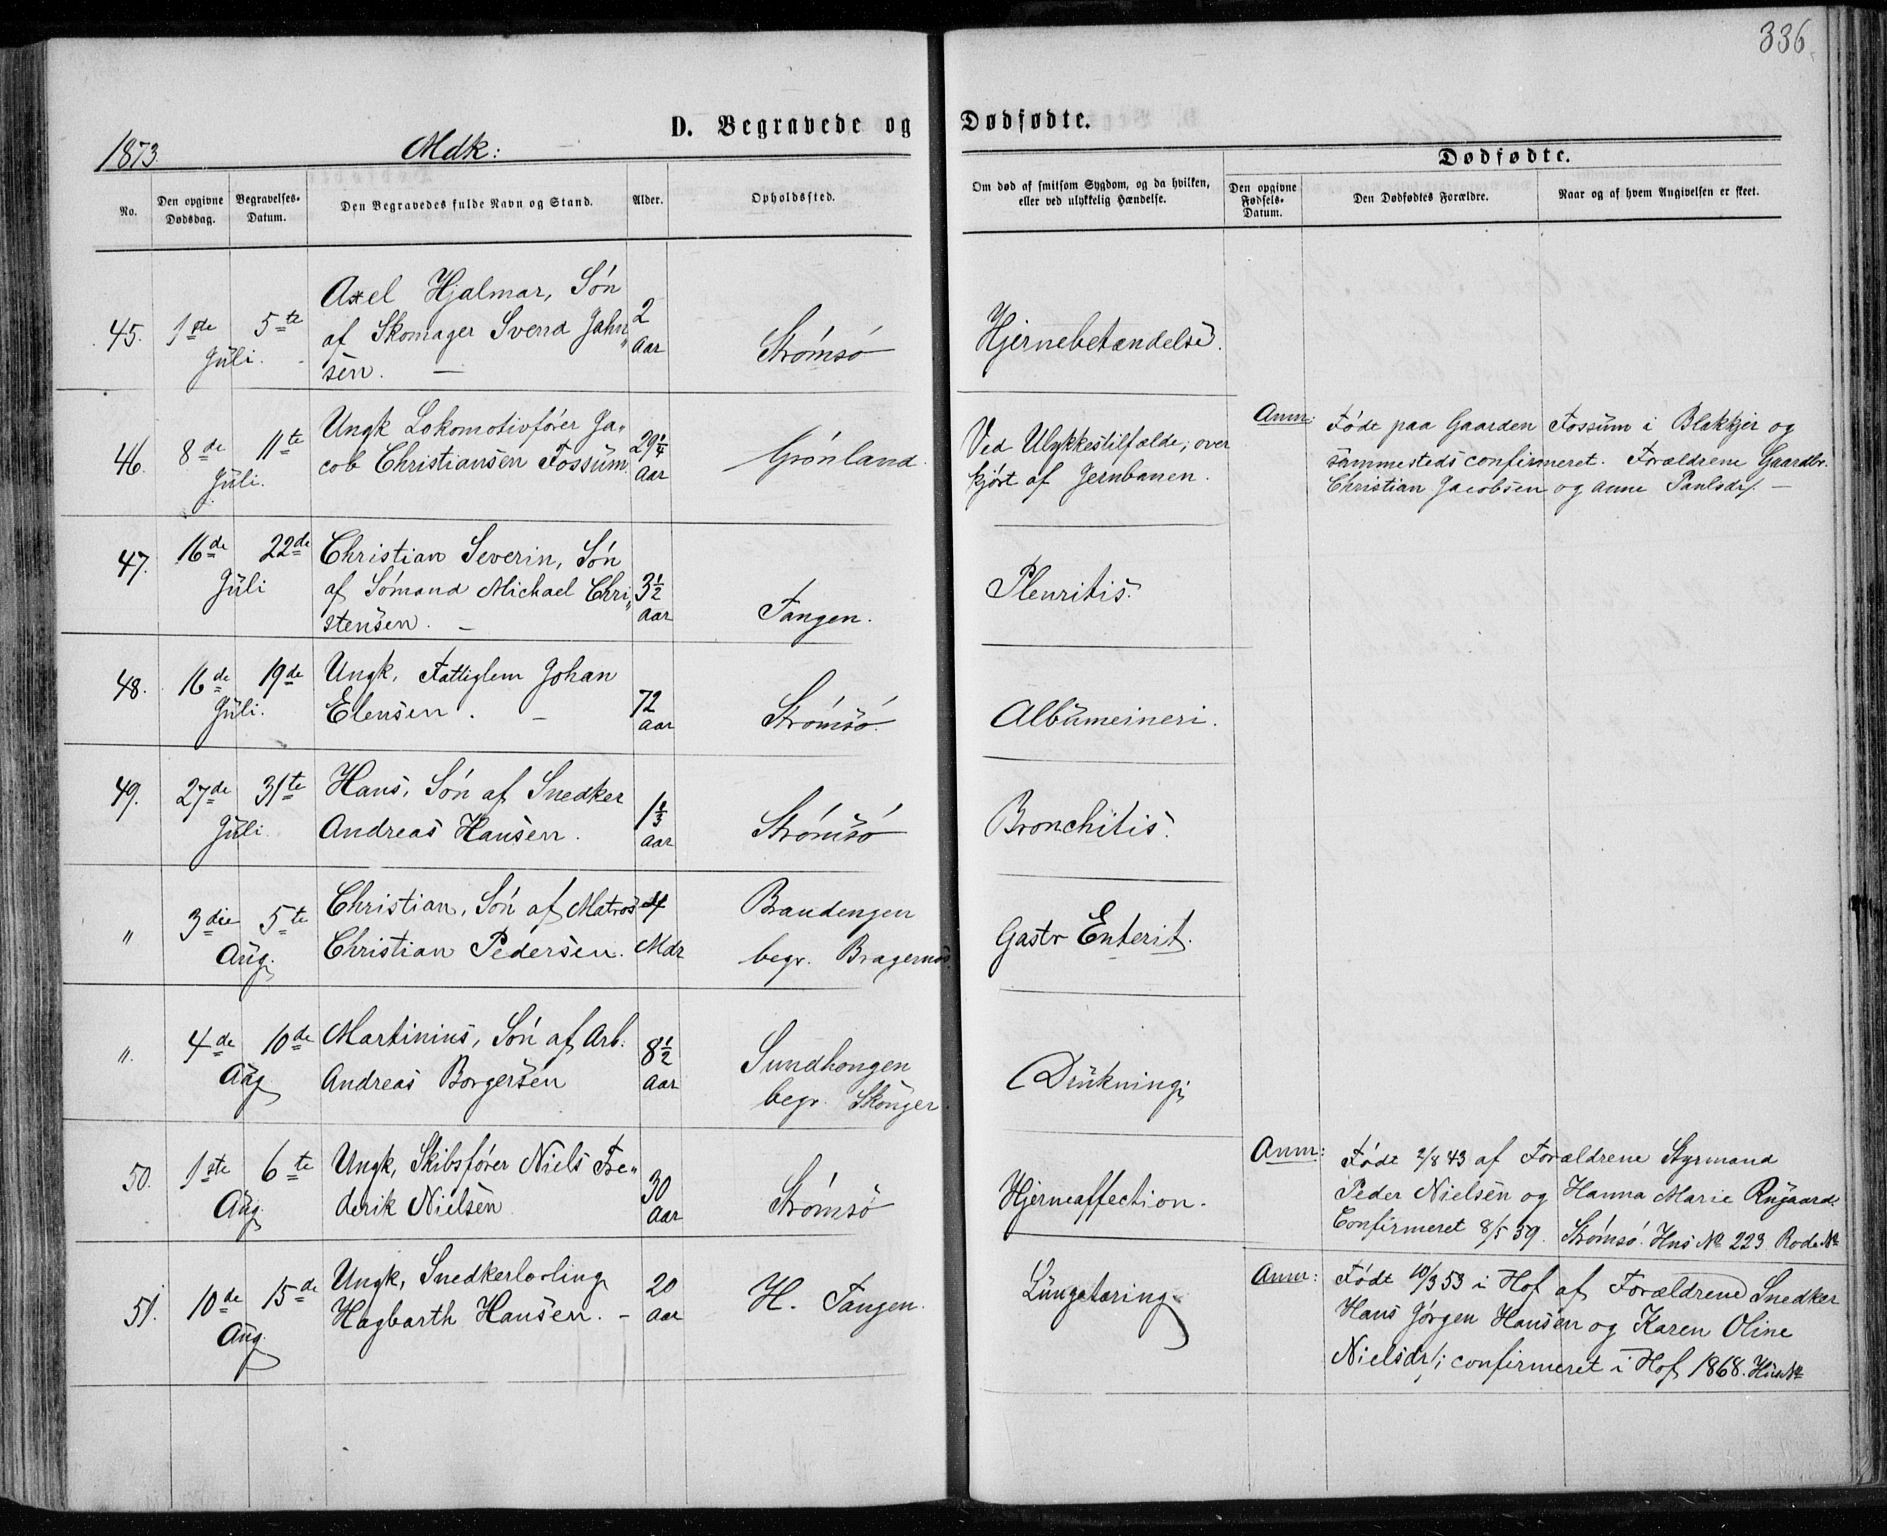 336
D. Begravede og Dødfødte.
1873 Mdk:
Dødfødte.
No.
Den opgivne Dødsdag.
Begravelses-Datum.
Den Begravedes fulde Navn og Stand.
Alder.
Opholdssted.
Om død af smitsom Sygdom, og da hvilken,
eller ved ulykkelig Hændelse.
Den opgivne Fødsels-Datum.
Den Dødfødtes Forældre.
Naar og af hvem Angivelsen er skeet.
45. 1ste 5te Juli.
Axel Hjalmar, Søn
af Skomager Svend Jahn„
sen. –
2 Aar
Strømsø
Hjernebetændelse.
46. 8de 11te Juli.
Ungk Lokomotivfører Ja„
cob Christiansen Fossum
29¼ Aar
Grønland.
Ved Ulykkestilfælde, over
kjørt af Jernbanen.
Anm: Født paa Gaarden Fossum i Blakkjer og
sammesteds confirmeret. Forældrene Gaardbr.
Christian Jacobsen og Anne Paulsdr. –
47. 16de 22de Juli
Christian Severin, Søn
af Sømand Michael Chri„
stensen. –
3½ Aar
Tangen.
Pleuritis.
48. 16de 19de Juli.
Ungk, Fattiglem Johan
Elensen. –
72 Aar
Strømsø.
Albumeineri.
49. 27de 31te Juli.
Hans, Søn af Snedker
Andreas Hansen.
1⅓ Aar
Strømsø
Bronchitis.
„ 3die 5te Aug.
Christian, Søn af Matros
Christian Pedersen.
4 Mdr
Brandengen
begr. Bragernæs.
Gastr Enterit.
„ 4de 10de Aug
Martinius, Søn af Arb.
Andreas Borgersen
8½ Aar
Sundhougen
begr. Skouger.
Drukning.
50. 1ste 6te Aug.
Ungk, Skibsfører Niels Fre„
derik Nielsen
30 Aar
Strømsø
Hjerneaffection.
Anm: Født 2/8 43 af Forældrene Styrmand
Peder Nielsen og Hanna Marie Rygaard.
Confirmeret 8/5 59. Strømsø. Hus No 223. Rode No
51. 10de 15de Aug.
Ungk, Snedkerlærling
Hagbarth Hansen. –
20 Aar
H. Tangen.
Lungetæring
Anm: Født 10/3 53 i Hof af Forældrene Snedker
Hans Jørgen Hansen og Karen Oline
Nielsdr; confirmeret i Hof 1868. Hus No